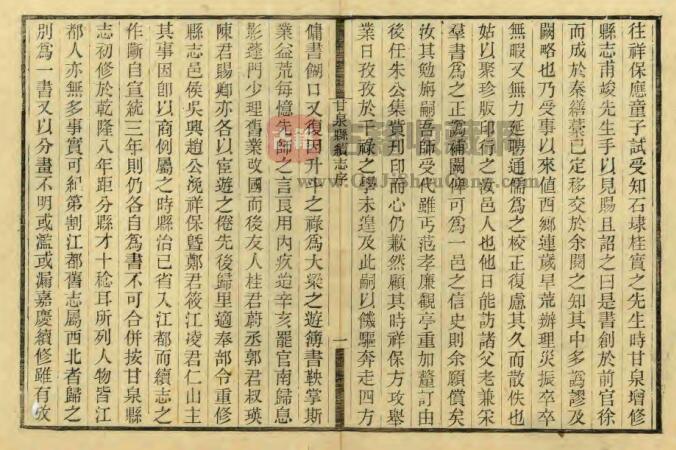 往祥保應童子試受知石埭桂實之先生時甘泉增修
縣志甫竣先生手以見賜且詔之曰是書創於前官徐
而成於秦繕藁已定移交於余閱之知其中多譌謬及
闕略也乃受事以來值西鄉連歲旱荒辦理災振卒卒
無暇又無力延聘通儒為之校正復慮其久而散佚也
姑以聚珍版印行之汝邑人也他日能訪諸父老兼采
羣書為之正譌補闕俾可為一邑之信史則余願償矣
汝其勉旃嗣吾師受代雖丐范孝廉觀亭重加釐訂由
後任朱公集貲刊印而心仍歉然顧其時祥保方攻舉
業日孜孜於干祿之學未遑及此嗣以饑驅奔走四方
甘泉縣續志序
一
傭書餬口又復因升斗之祿為大梁之遊簿書鞅掌斯
業益荒每憶先師之言良用內疚迨辛亥罷官南歸息
影蓬門少理舊業改國而後友人桂君蔚丞郭君叔瑛
陳君賜卿亦各以宦遊之倦先後歸里適奉部令重修
縣志邑侯吳興趙公浼祥保暨鄭君筱江凌君仁山主
其事因即以商例屬之時縣治已省入江都而續志之
作斷自宣統三年則仍各自為書不可合併按甘泉縣
志初修於乾隆八年距分縣才十稔耳所列人物皆江
都人亦無多事實可紀第割江都舊志屬西北者歸之
別為一書又以分畫不明或濫或漏嘉慶續修雖有攷